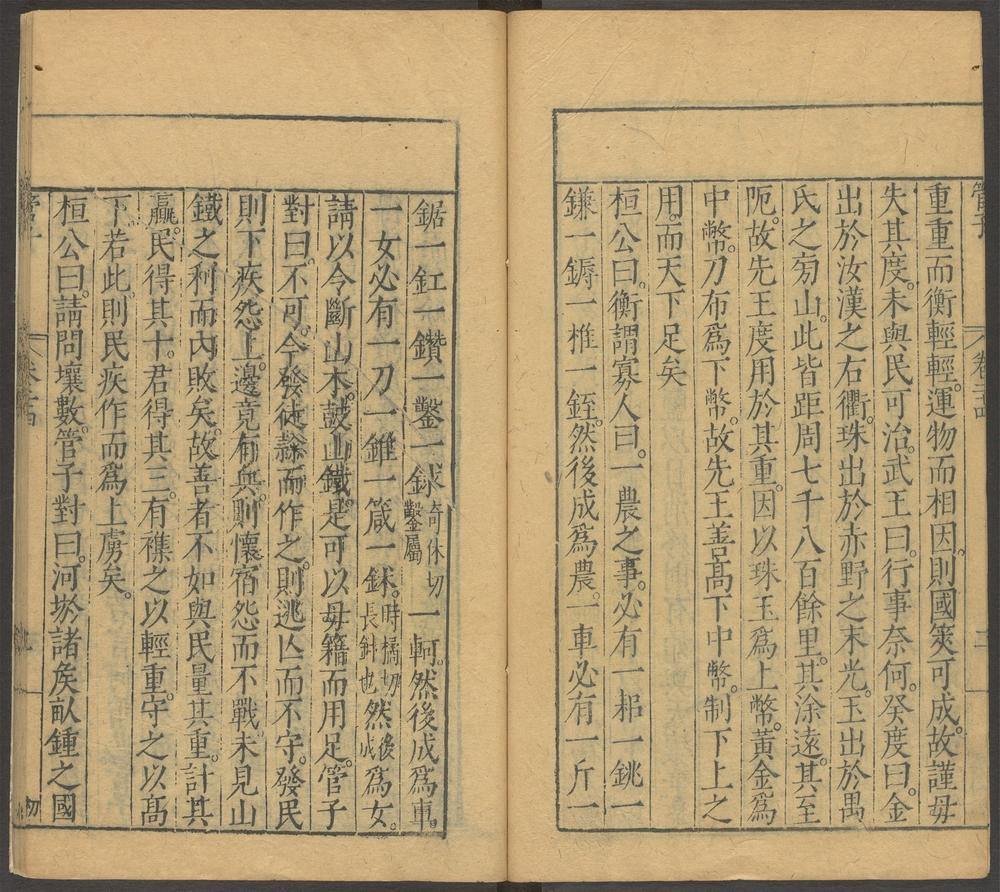 管子
卷二十四
重重而衡輕輕。運物而相因。則國筴可成。故謹毋
失其度。未與民可治。武王曰。行事奈何。癸度曰。金
出於汝漢之右衢。珠出於赤野之末光。玉出於禺
氏之旁山。此皆距周七千八百餘里。其涂遠。其至
阨。故先王度用於其重。因以珠玉爲上幣。黃金爲
中幣。刀布爲下幣。故先王善高下中幣。制下上之
用。而天下足矣
桓公曰。衡謂寡人曰。一農之事。必有一耜一銚一
鎌一鎒一椎一銍。然後成爲農。一車必有一斤一
鋸一釭一鑽一鑿一銶奇休切鑿屬一軻。然後成爲車。
一女必有一刀一錐一箴一鉥。時橘切長針也然後成爲女。
請以令斷山木。鼓山鐵。是可以毋籍而用足。管子
對曰。不可。今發徒隸而作之。則逃亾而不守。發民
則下疾怨上。邊竟有兵。則懷宿怨而不戰。未見山
鐵之利而內敗矣。故善者不如與民量其重。計其
贏。民得其十。君得其三。有襍之以輕重。守之以高
下。若此。則民疾作而爲上虜矣。
桓公曰。請問壤數。管子對曰。河㳀諸矦畝鍾之國